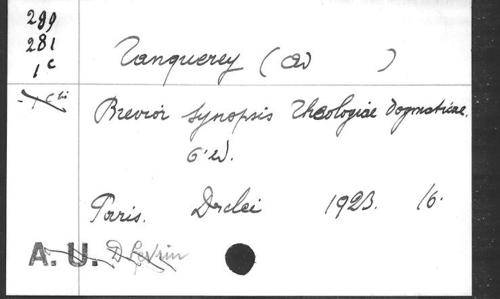 239
281
1c
Tanquerey (ad )
Brevior Synopsis Theologiae Dogmaticae.
6ª ed.
Paris. Desclei 1923. 16.
A. U.